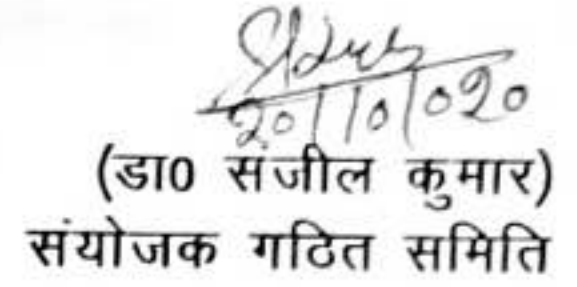 20/10/020
(डा0 संजील कुमार)
संयोजक गठित समिति